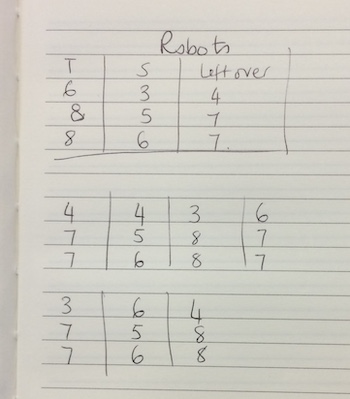 Robots
T S Leftover
6 3 4
8 5 7
8 6 7.
4 4 3 6
7 5 8 7
7 6 8 7
3 6 4
7 5 8
7 6 8